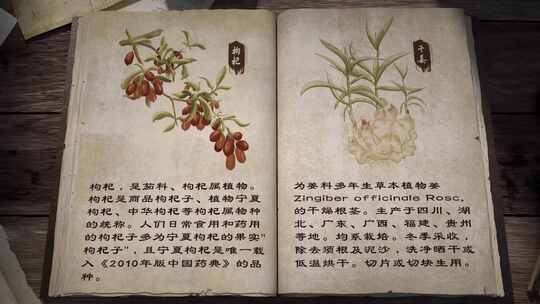 枸杞
枸杞，是茄科、枸杞属植物。
枸杞是商品枸杞子、植物宁夏
枸杞、中华枸杞等枸杞属物种
的统称。人们日常食用和药用
的枸杞子多为宁夏枸杞的果实“
枸杞子”，且宁夏枸杞是唯一载
入《2010年版中国药典》的品
种。
干姜
为姜科多年生草本植物姜
Zingiber officinale Rosc.
的干燥根茎。主产于四川、湖
北、广东、广西、福建、贵州
等地。均系栽培。冬季采收，
除去须根及泥沙，洗净晒干或
低温烘干。切片或切块生用。